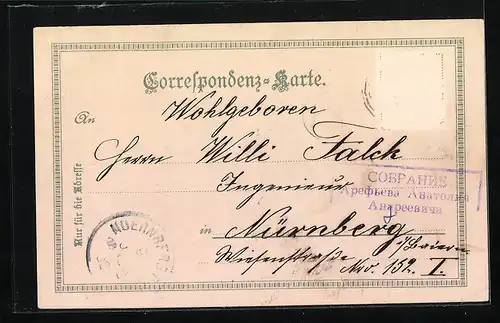 Correspondenz-Karte.
An
Wohlgeboren
Herrn Willi Falck
Ingenieur
in Nürnberg
Wiesenstraße
Nro. 152. I.
Nur für die Adresse
СОБРАНИЕ
Арефьева Анатолия
Андреевича
NUERNBERG